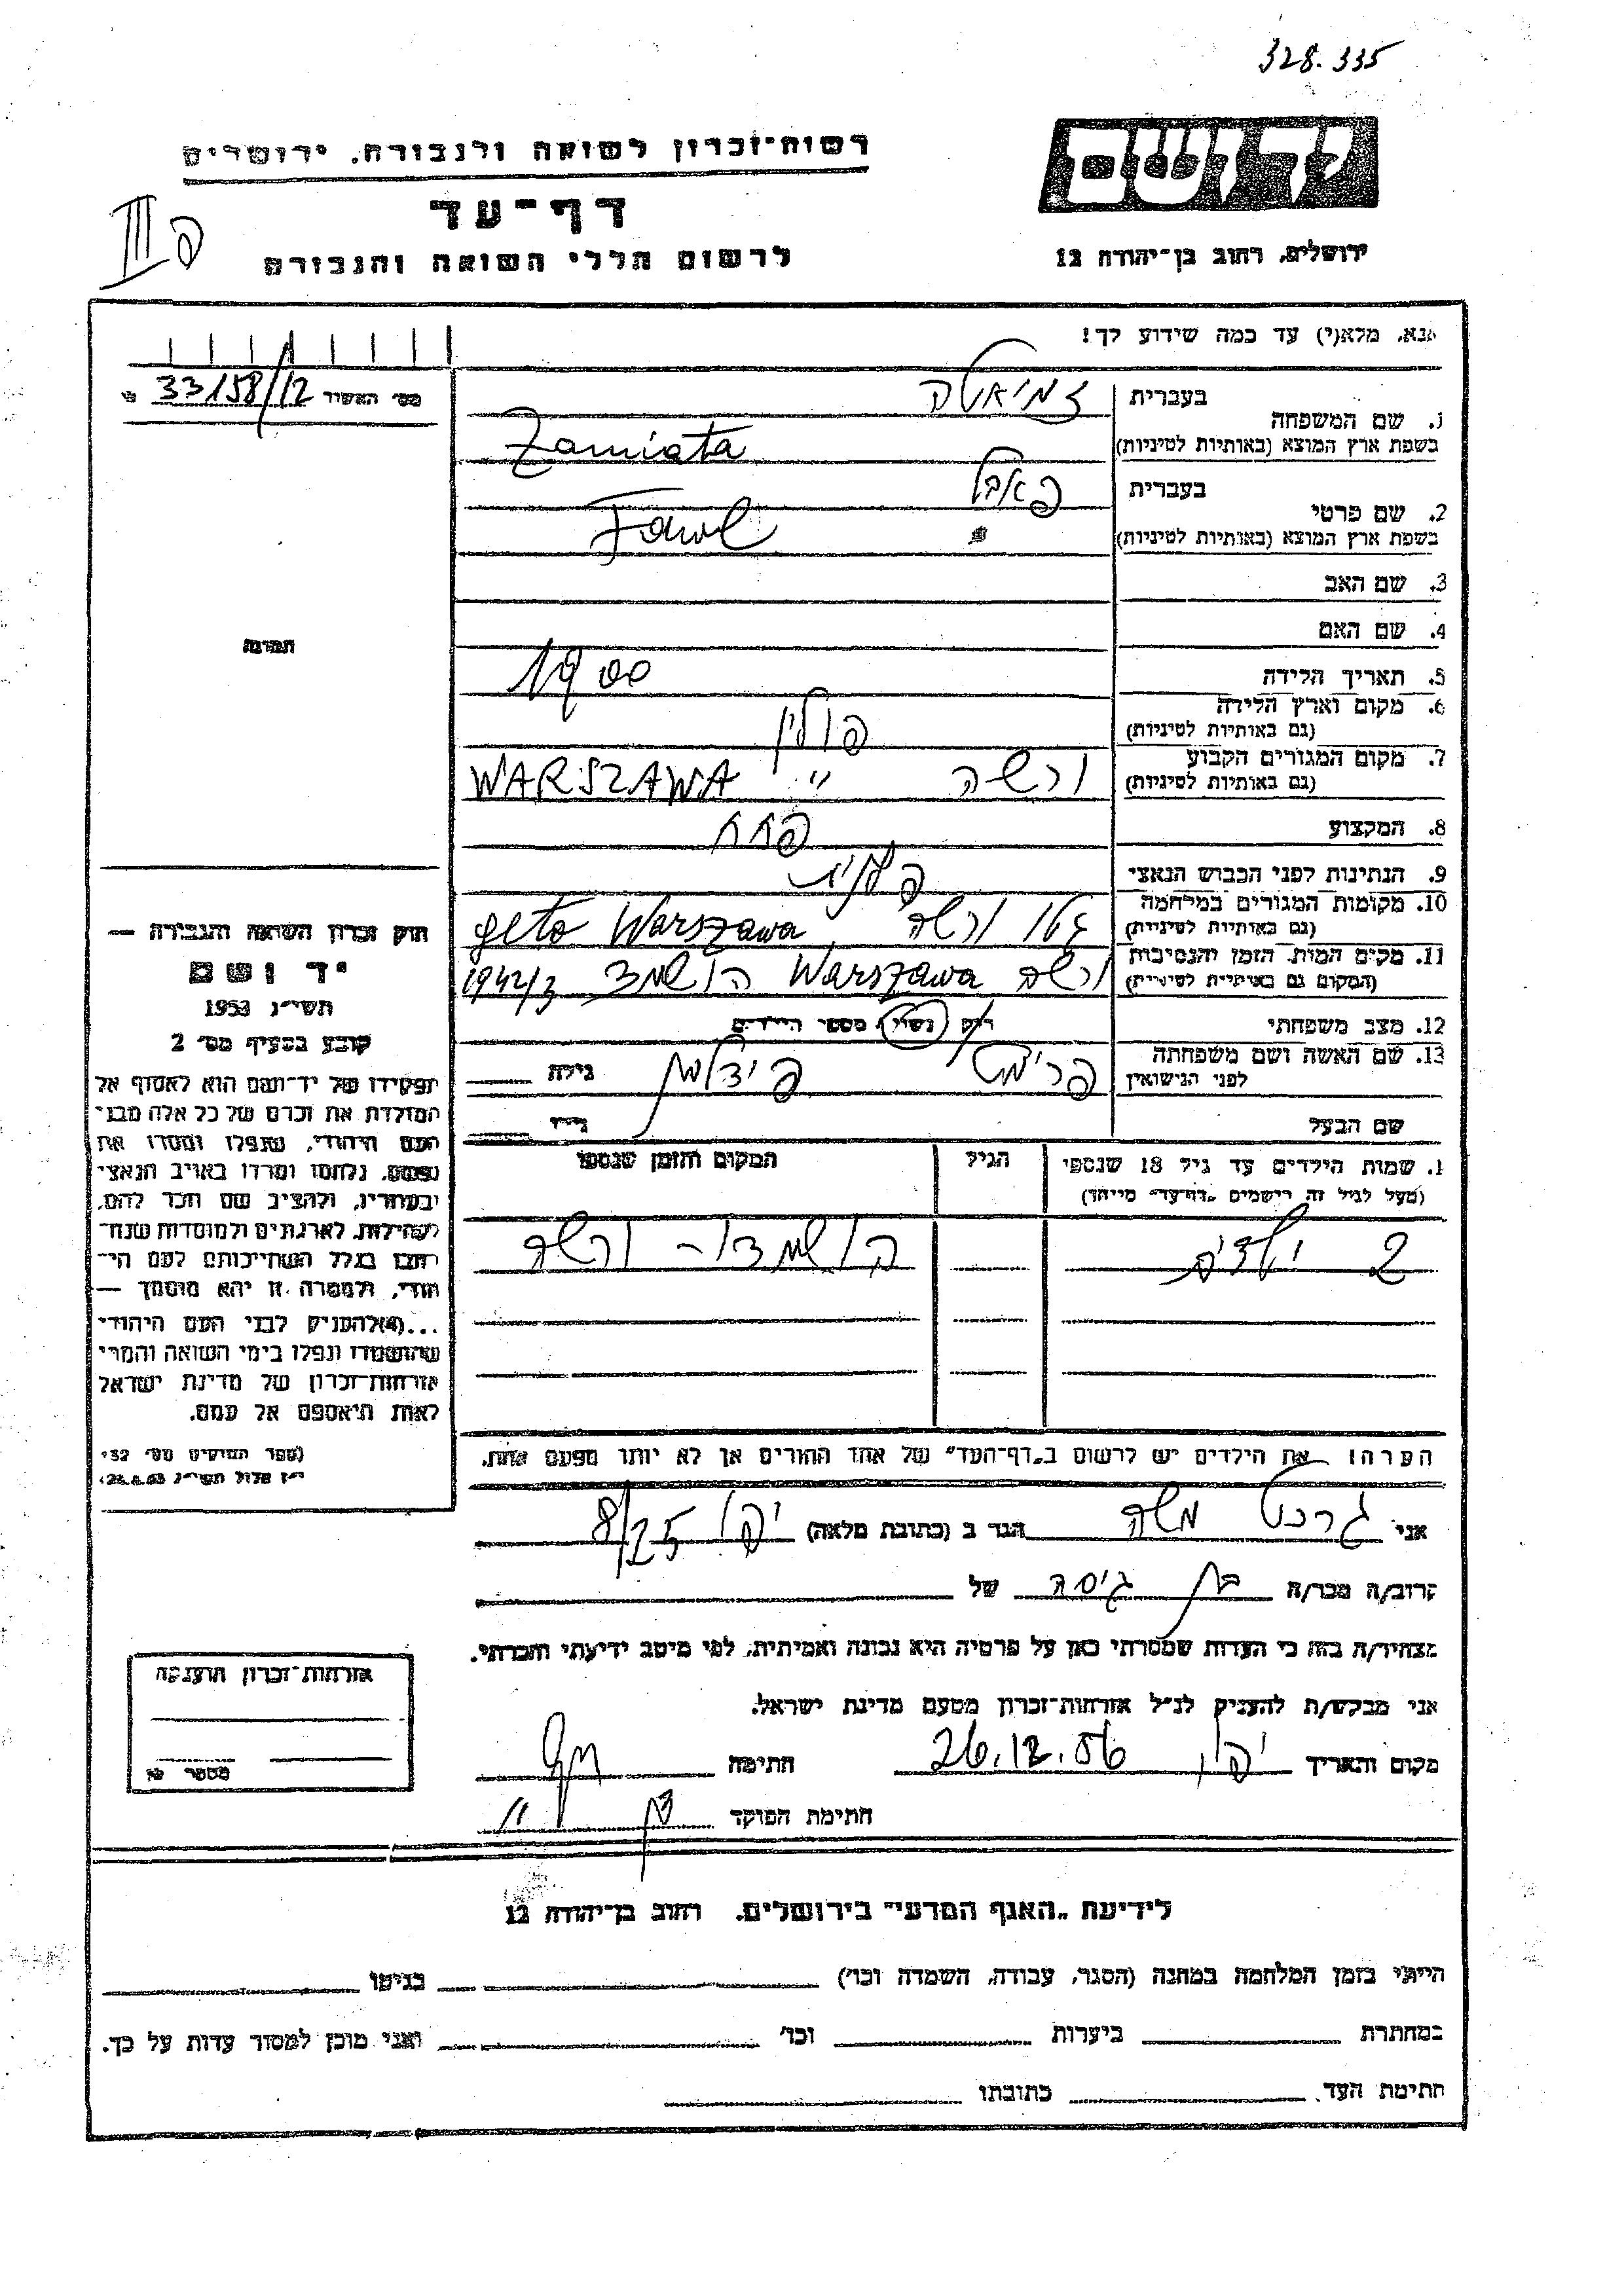 328.335
רשות־זכרון לשואה ולגבורה. ירושלים
דף־עד
לרשום חללי השואה והגבורה
ירושלים, רחוב בן־יהודה 12
אנא, מלא(י) עד כמה שידוע לך!
מס׳ האשור 33/158/12
1. שם המשפחה
בעברית זמיאטה
בשפת ארץ המוצא (באותיות לטיניות) Zamiata
2. שם פרטי
בעברית פאבל
בשפת ארץ המוצא (באותיות לטיניות)
3. שם האב
4. שם האם
5. תאריך הלידה 1900
6. מקום וארץ הלידה
(גם באותיות לטיניות) פולין
7. מקום המגורים הקבוע
(גם באותיות לטיניות) ורשה " WARSZAWA
8. המקצוע פחח
9. הנתינות לפני הכבוש הנאצי
10. מקומות המגורים במלחמה
(גם באותיות לטיניות) גטו ורשה, geto Warszawa
11. מקום המות. הזמן והנסיבות
(המקום גם באותיות לטיניות) ורשה Warszawa הושמד 1942/3
12. מצב משפחתי
רוק נשוי, מספר הילדים
13. שם האשה ושם משפחתה
לפני הנישואין גילה
שם הבעל גילו
1. שמות הילדים עד גיל 18 שנספו
(מעל לגיל זה רישמים „דף־עד״ מייחד)
הגיל
המקום והזמן שנספו
2 ילדים הושמדו - ורשה
הערה: את הילדים יש לרשום ב„דף־העד״ של אחד ההורים אך לא יותר מפעם אחת.
אני משה הגר ב (כתובת מלאה) 8/25
קרוב/ה מכר/ה בן גיסה של
מצהיר/ה בזה כי העדות שמסרתי כאן על פרטיה היא נכונה ואמיתית, לפי מיטב ידיעתי והכרתי.
אני מבקש/ת להעניק לנ״ל אזרחות־זכרון מטעם מדינת ישראל.
מקום ותאריך 26.12.56 חתימה
חתימת הפוקד
תמונה
חוק זכרון השואה והגבורה —
יד ושם
תשי״ג 1953
קובע בסעיף מס׳ 2
תפקידו של יד־ושם הוא לאסוף אל
המולדת את זכרם של כל אלה מבני
העם היהודי, שנפלו ומסרו את
נפשם, נלחמו ומרדו באויב הנאצי
ובעוזריו, ולהציב שם וזכר להם,
לקהילות, לארגונים ולמוסדות שנח־
רבו בגלל השתייכותם לעם הי־
הודי, ולמטרה זו יהא מוסמך —
...(4) להעניק לבני העם היהודי
שהושמדו ונפלו בימי השואה והמרי
אזרחות־זכרון של מדינת ישראל
לאות היאספם אל עמם.
(ספר החוקים מס׳ 132
אזרחות־זכרון הוענקה
מספר
לידיעת „האגף המדעי״ בירושלים. רחוב בן־יהודה 12
הייתי בזמן המלחמה במחנה (הסגר, עבודה, השמדה וכו׳) בגיטו
במחתרת ביערות וכו׳ ואני מוכן למסור עדות על כך.
חתימת העד. כתובתו